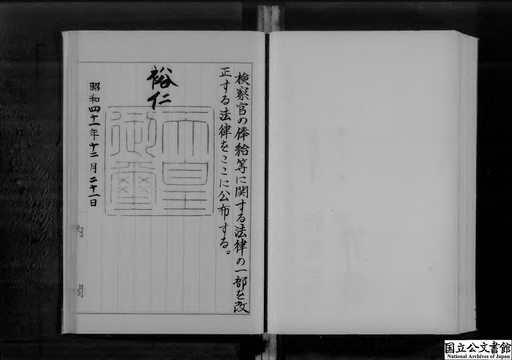 検察官の俸給等に関する法律の一部を改
正する法律をここに公布する。
裕仁
天皇
御璽
昭和四十一年十二月二十一日
内閣
国立公文書館
National Archives of Japan